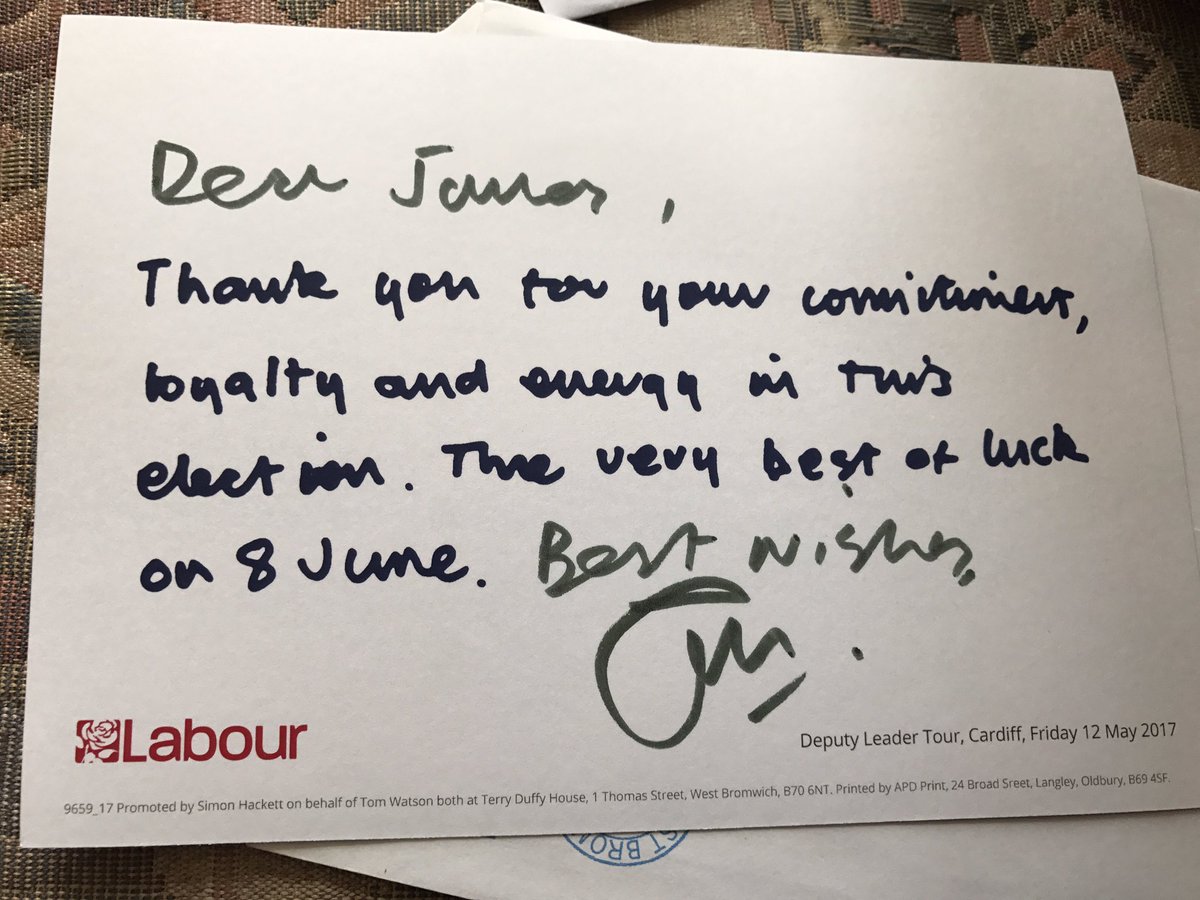 Dear James,
Thank you for your commitment,
loyalty and energy in this
election. The very best of luck
on 8 June. Best wishes,
Tom.
Labour
Deputy Leader Tour, Cardiff, Friday 12 May 2017
9659_17 Promoted by Simon Hackett on behalf of Tom Watson both at Terry Duffy House, 1 Thomas Street, West Bromwich, B70 6NT. Printed by APD Print, 24 Broad Sreet, Langley, Oldbury, B69 4SF.